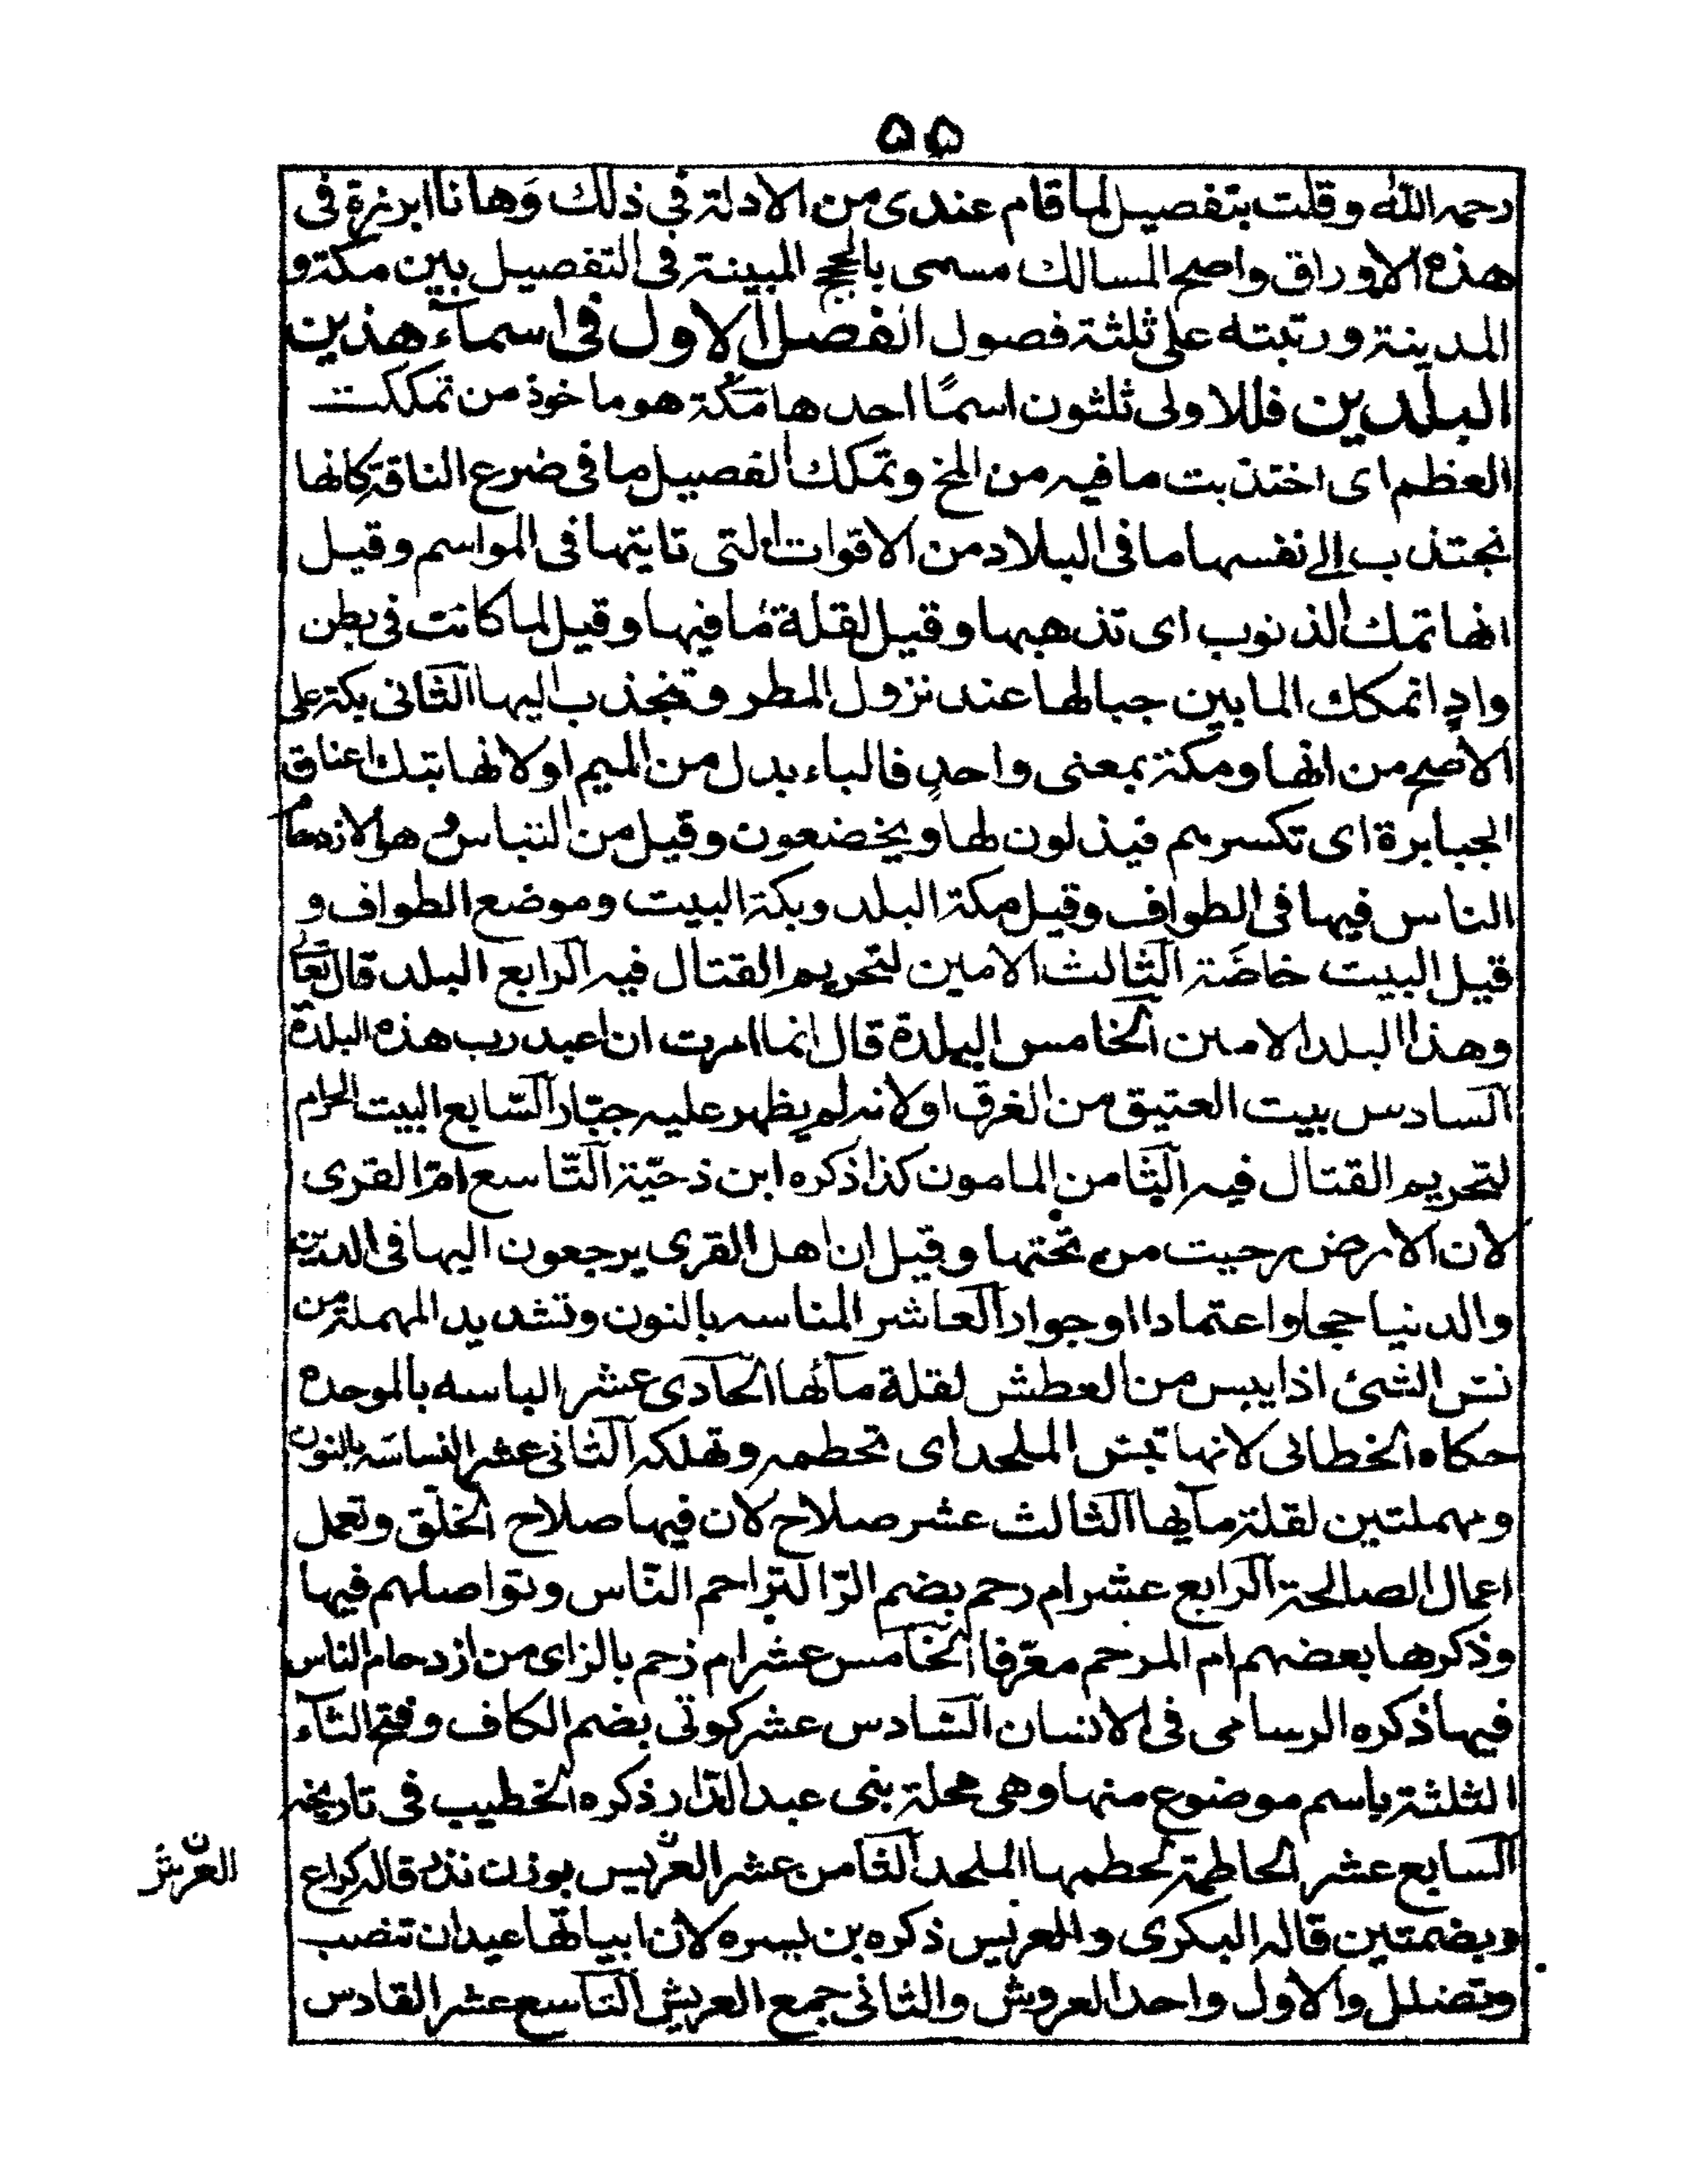 ۵۵
رحمه الله وقلت بتفصيل لما قام عندى من الادلة فى ذلك وَها نا ابرزة فى
هذه الاوراق واضح المسالك مسمى بالحجج المبينة فى التفصيل بين مكة و
المدينة ورتبته على ثلثة فصول الفصل الاول فى اسمآء هذين
البلدين فللاولى ثلثون اسمًا احدها مكّة هو ماخوذ من تمككت
العظم اى اختذبت ما فيه من المخ وتمكك الفصيل ما فى ضرع الناقة كانها
نجتذب الى نفسها ما فى البلاد من الاقوات التى تايتها فى المواسم وقيل
انها تمك الذنوب اى تذهبها وقيل لقلة مافيها وقيل لما كانت فى بطن
وادٍ اتمكك الما بين جبالها عند نزول المطر وتنجذب اليها الثانى بكة على
الاصح من انها ومكة بمعنى واحدٍ فالباء بدل من الميم او لانها تبك اعناق
الجبابرة اى تكسرهم فيذلون لها ويخضعون وقيل من التباس و هو الازدحام
الناس فيها فى الطواف وقيل مكة البلد وبكة البيت وموضع الطواف و
قيل البيت خاصَة الثالث الامين لتحريم القتال فيه الرابع البلد قال تعالى
وهذا البلد الامين الخامس البلدة قال انما امرت ان اعبد رب هذه البلدة
السادس بيت العتيق من الغرق او لانه لم يظهر عليه جبّار السّابع البيت الحرام
لتحريم القتال فيه الثامن المامون كذا ذكره ابن دحيّة التّاسع امّ القرى
لان الارض رحيت من تحتها وقيل ان اهل القرى يرجعون اليها فى الدين
والدنيا حجا واعتمادا او جوارا العاشر المناسه بالنون وتشديد المهملة من
نتس الشئ اذا يبس من العطش لقلة مآئها الحادى عشر الباسه بالموحده
حكاه الخطابى لانها تبس الملحد اى تحطمه وتهلكه الثانى عشر النساسَه بالنون
ومهملتين لقلة مآيها الثالث عشر صلاح لان فيها صلاح الخلق وتعمل
اعمال الصالحة الرابع عشر ام رحم بضم الرّا لتراحم النّاس وتواصلهم فيها
وذكرها بعضهم ام المرحم معرّفا الخامس عشر ام زحم بالزاى من ازدحام الناس
فيها ذكره الرسامى فى الانسان السّادس عشر كوتى بضم الكاف وفتح الثآء
الثلثة باسم موضوع منها وهى محلة بنى عبد الدّار ذكره الخطيب فى تاريخه
السابع عشر الحاطمة لحطمها الملحد الثامن عشر العرّيس بوزن نذر قاله كراع
وبضمتين قاله البكرى والعريس ذكره بن يسره لان ابياتها عيدان تنصب
وتضلل والاول واحد العروش والثانى جمع العريش التاسع عشر القادس
العرّيش